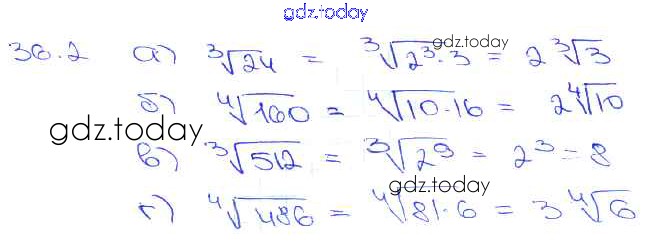 gdz.today
36.2 а) ∛24 = ∛(2³·3) = 2∛3
gdz.today
б) ∜160 = ∜(10·16) = 2∜10
gdz.today
в) ∛512 = ∛(2⁹) = 2³ = 8
gdz.today
г) ∜486 = ∜(81·6) = 3∜6